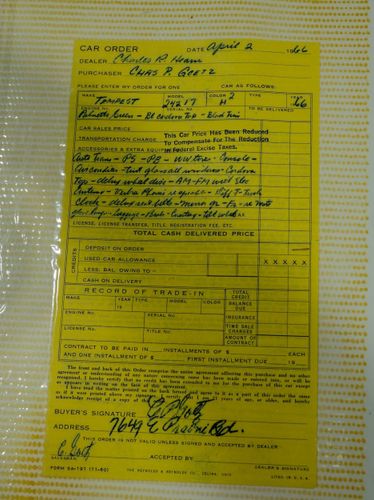 CAR ORDER DATE April 2 1966
DEALER Charles R.
PURCHASER CHAS P. GOETZ
PLEASE ENTER MY ORDER FOR ONE CAR AS FOLLOWS:
MAKE MODEL COLOR TYPE YEAR
TEMPEST 24217 2 H 66
ENGINE NO. SERIAL NO. TO BE DELIVERED
Palmetto Green - Bl cordova Top -
CAR SALES PRICE
This Car Price Has Been Reduced
TRANSPORTATION CHARGE To Compensate For The Reduction
ACCESSORIES & EXTRA EQUIPMENT In Federal Excise Taxes.
Auto Trans - PS - PB - WW tire - Console -
tint glass all windows - Cordova
Top - delux wheel discs - AM-FM with Elec
Antenna -
Clock - delux seat belts - mirror
LICENSE, LICENSE TRANSFER, TITLE, REGISTRATION FEE, ETC.
TOTAL CASH DELIVERED PRICE
CREDITS
DEPOSIT ON ORDER
USED CAR ALLOWANCE X X X X X
LESS: BAL. OWING TO
CASH ON DELIVERY
RECORD OF TRADE-IN TOTAL CREDIT
MAKE YEAR 19 TYPE MODEL COLOR BALANCE DUE
ENGINE NO. SERIAL NO. INSURANCE
LICENSE NO. TITLE NO. TIME SALE CHARGES
AMOUNT OF CONTRACTS
CONTRACT TO BE PAID IN INSTALLMENTS OF $ EACH
AND ONE INSTALLMENT OF $ FIRST INSTALLMENT DUE 19
The front and back of this Order comprise the entire agreement affecting this purchase and no other
agreement or understanding of any nature concerning same has been made or entered into, or will be
recognized. I hereby certify that no credit has been extended to me for the purchase of this car except
as appears in writing on the face of this agreement.
I have read the matter printed on the back hereof and agree to it as a part of this order the same
as if it were printed above my signature. I certify that I am 21 years of age, or older, and hereby
acknowledge receipt of a copy of this order.
BUYER'S SIGNATURE
ADDRESS 7649 E Prairie Rd.
THIS ORDER IS NOT VALID UNLESS SIGNED AND ACCEPTED BY DEALER
ACCEPTED BY
DEALER'S SIGNATURE
THE REYNOLDS & REYNOLDS CO., CELINA, OHIO
LITHO IN U.S.A.